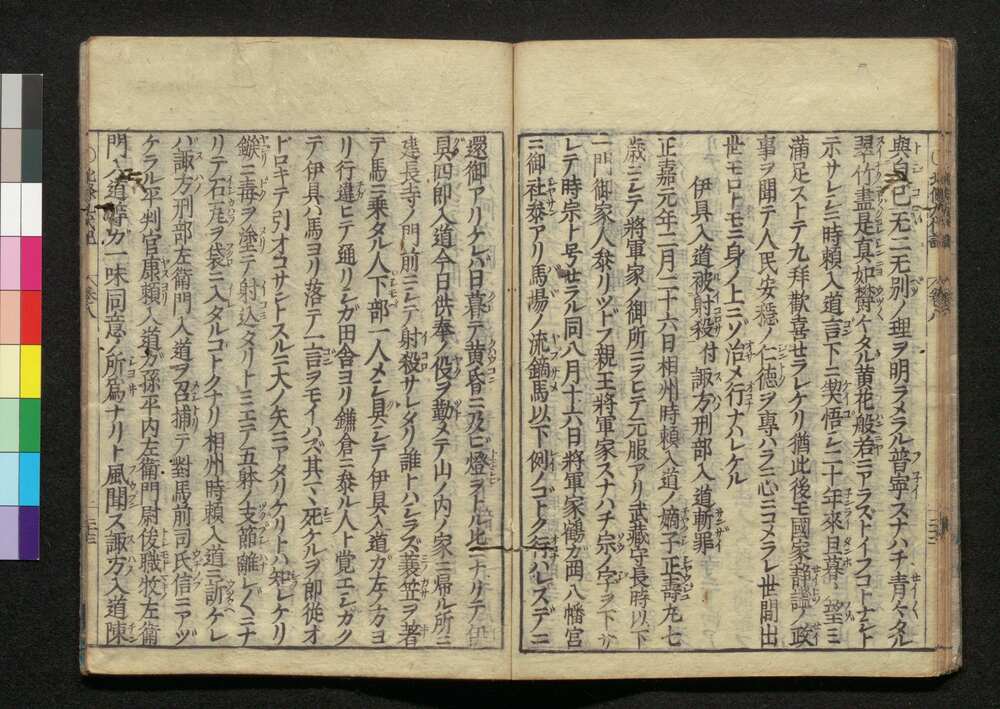 與自己一无二无別ノ理ヲ明ラメラル普寧スナハチ青々タル
翠竹盡是真如欝々タル黄花般若ニアラズトイフコトナシト
示サレシニ時頼入道言下ニ契悟シ二十年來旦暮ノ望ミ
滿足ストテ九拜歡喜セラレケリ猶此後モ國家靜謐ノ政
事ヲ聞テ人民安穩ノ仁徳ヲ專ハラ心ニコメラレ世間出
世モロトモニ身ノ上ニゾ治メ行ナハレケル
伊具入道被射殺付諏方刑部入道斬罪
正嘉元年二月二十六日相州時頼入道ノ嫡子正壽丸七
歳ニシテ將軍家ノ御所ニヲヒテ元服アリ武藏守長時以下
一門御家人參リツドフ親王將軍家スナハチ宗ノ字ヲ下サ
レテ時宗ト号セラル同八月十六日將軍家鶴ガ岡八幡宮
ニ御社參アリ馬場ノ流鏑馬以下例ノゴトク行ハレスデニ
還御アリケレバ日暮テ黄昏ニ及ビ燈ヲトル比ニナリテ伊
具四郎入道今日供奉ノ役ヲ勤メテ山ノ内ノ家ニ帰ル所ニ
建長寺ノ門前ニシテ射殺サレタリ誰トハシラズ蓑笠ヲ著
テ馬ニ乗タル人下部一人メシ具シテ伊具入道ガ左ノ方ヨ
リ行違ヒテ通リシガ田舎ヨリ鎌倉ニ參ル人ト覚エシガク
テ伊具ハ馬ヨリ落テ一言ヲモイハズ其マヽ死ケルヲ即從オ
ドロキテ引オコサントスルニ犬ノ矢ニアタリケリトハ知レケリ
鏃ニ毒ヲ塗テ射込タリトミエテ五躰ノ支節離レ〱ニナ
リテ石瓦ヲ袋ニ入タルゴトクナリ相州時頼入道ニ訴ケレ
バ諏方刑部左衛門入道ヲ召捕テ對馬前司氏信ニアヅ
ケラル平判官康頼入道ガ孫平内左衛門尉俊職牧左衛
門入道等ガ一味同意ノ所爲ナリト風聞ス諏方入道陳